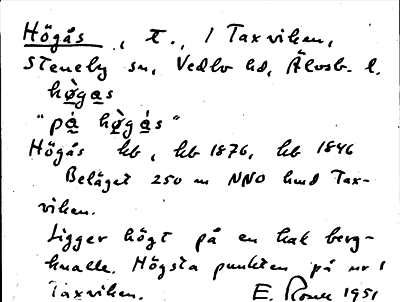 Högås, t., 1 Taxviken,
Steneby sn, Vedbo hd, Älvsb. l.
hø̀gas
"på hø̀gás"
Högås kb, hb 1876, hb 1846
Beläget 250 m NNO hmd Tax-
viken.
Ligger högt på en kal berg-
knalle. Högsta punkten på nr 1
Taxviken. E. 1951